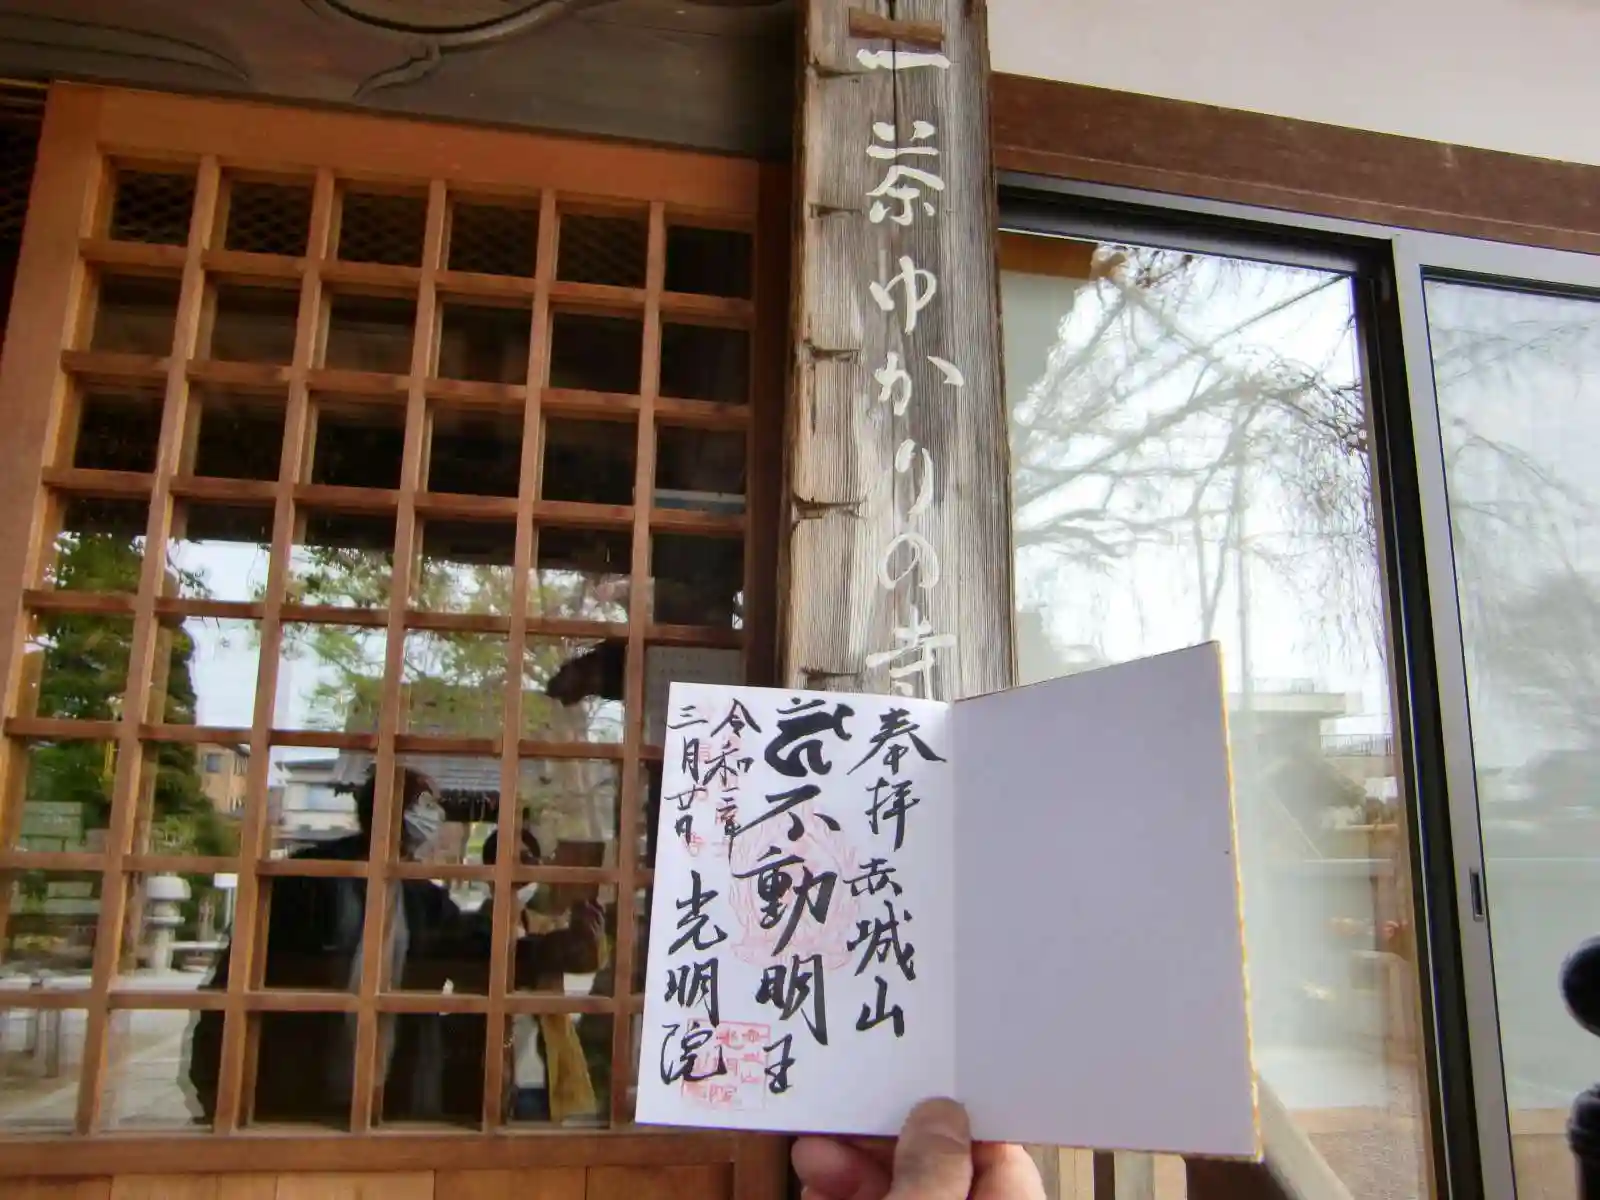 一茶ゆかりの寺
奉拝 赤城山
不動明王
令和二年
三月廿日
光明院